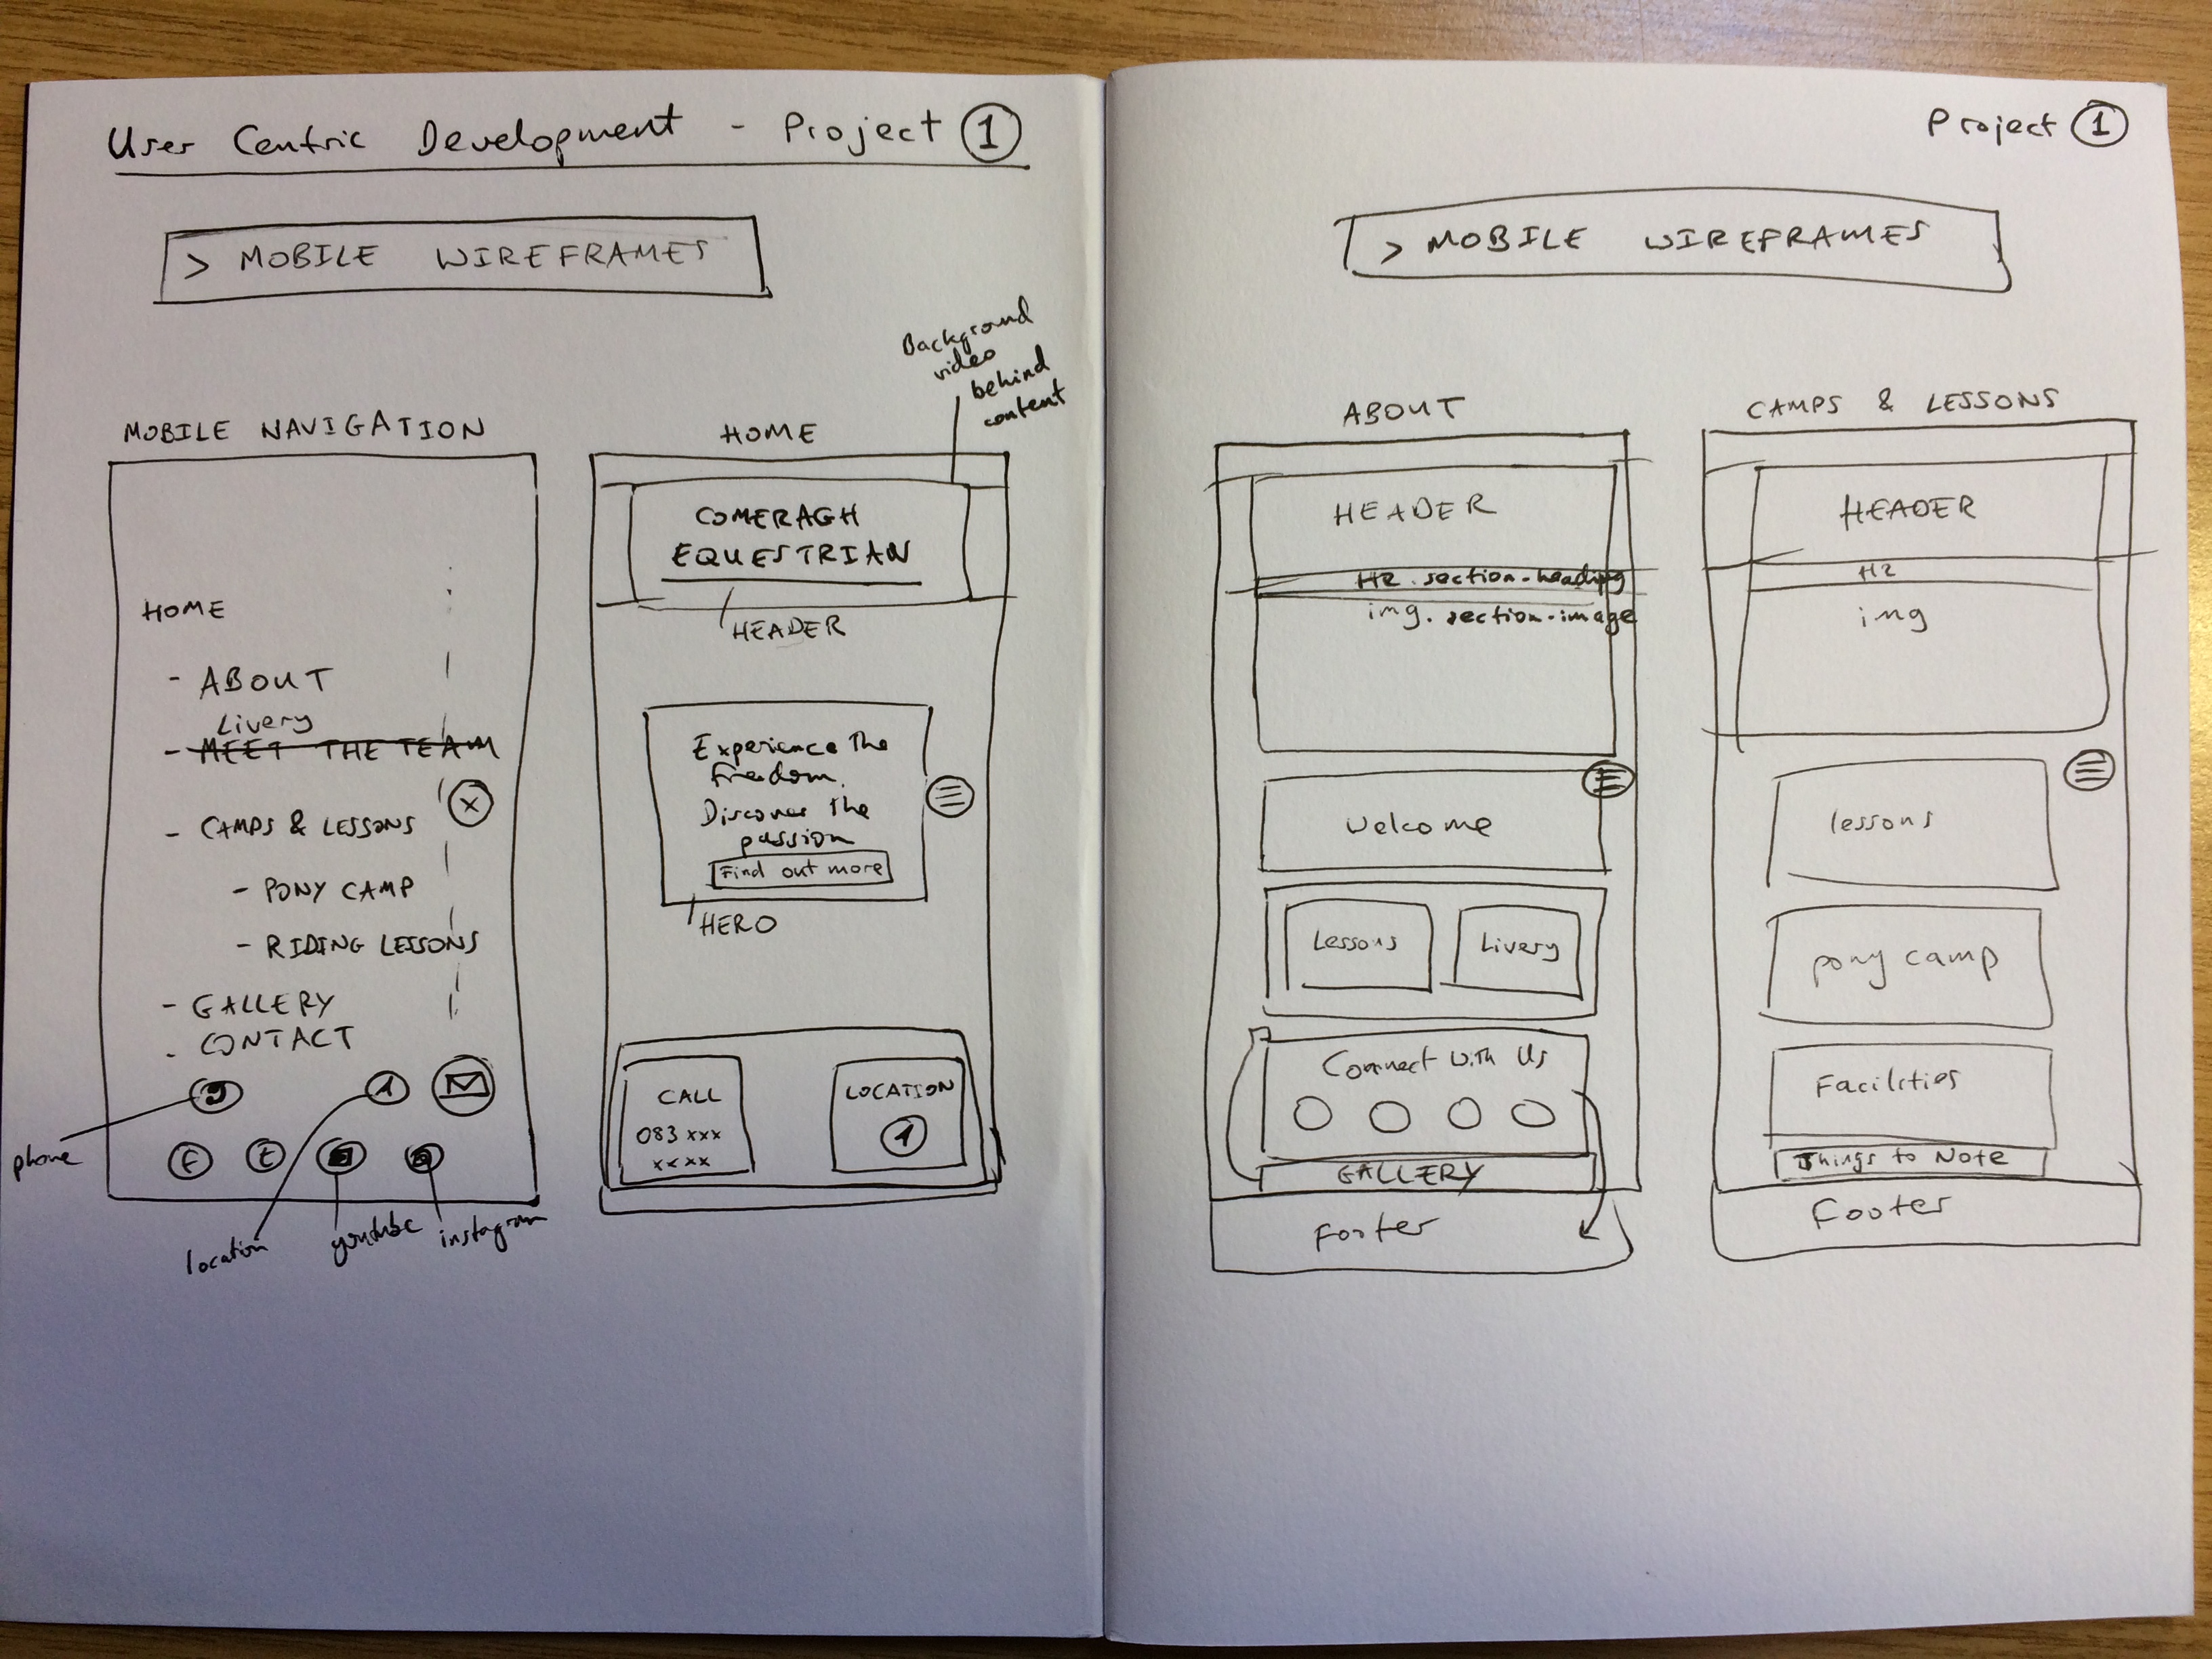 User Centric Development - Project 1
> MOBILE WIREFRAMES
MOBILE NAVIGATION
HOME
- ABOUT
Livery
- MEET THE TEAM
- CAMPS & LESSONS
- PONY CAMP
- RIDING LESSONS
- GALLERY
- CONTACT
X
phone
location
youtube
instagram
HOME
Background
video
behind
content
COMERAGH
EQUESTRIAN
HEADER
Experience the
freedom.
Discover the
passion
Find out more
HERO
CALL
083 xxx
xxxx
LOCATION
Project 1
> MOBILE WIREFRAMES
ABOUT
HEADER
H2.section-heading
img.section-image
Welcome
Lessons
Livery
Connect with Us
GALLERY
Footer
CAMPS & LESSONS
HEADER
H2
img
lessons
pony camp
Facilities
Things to Note
Footer